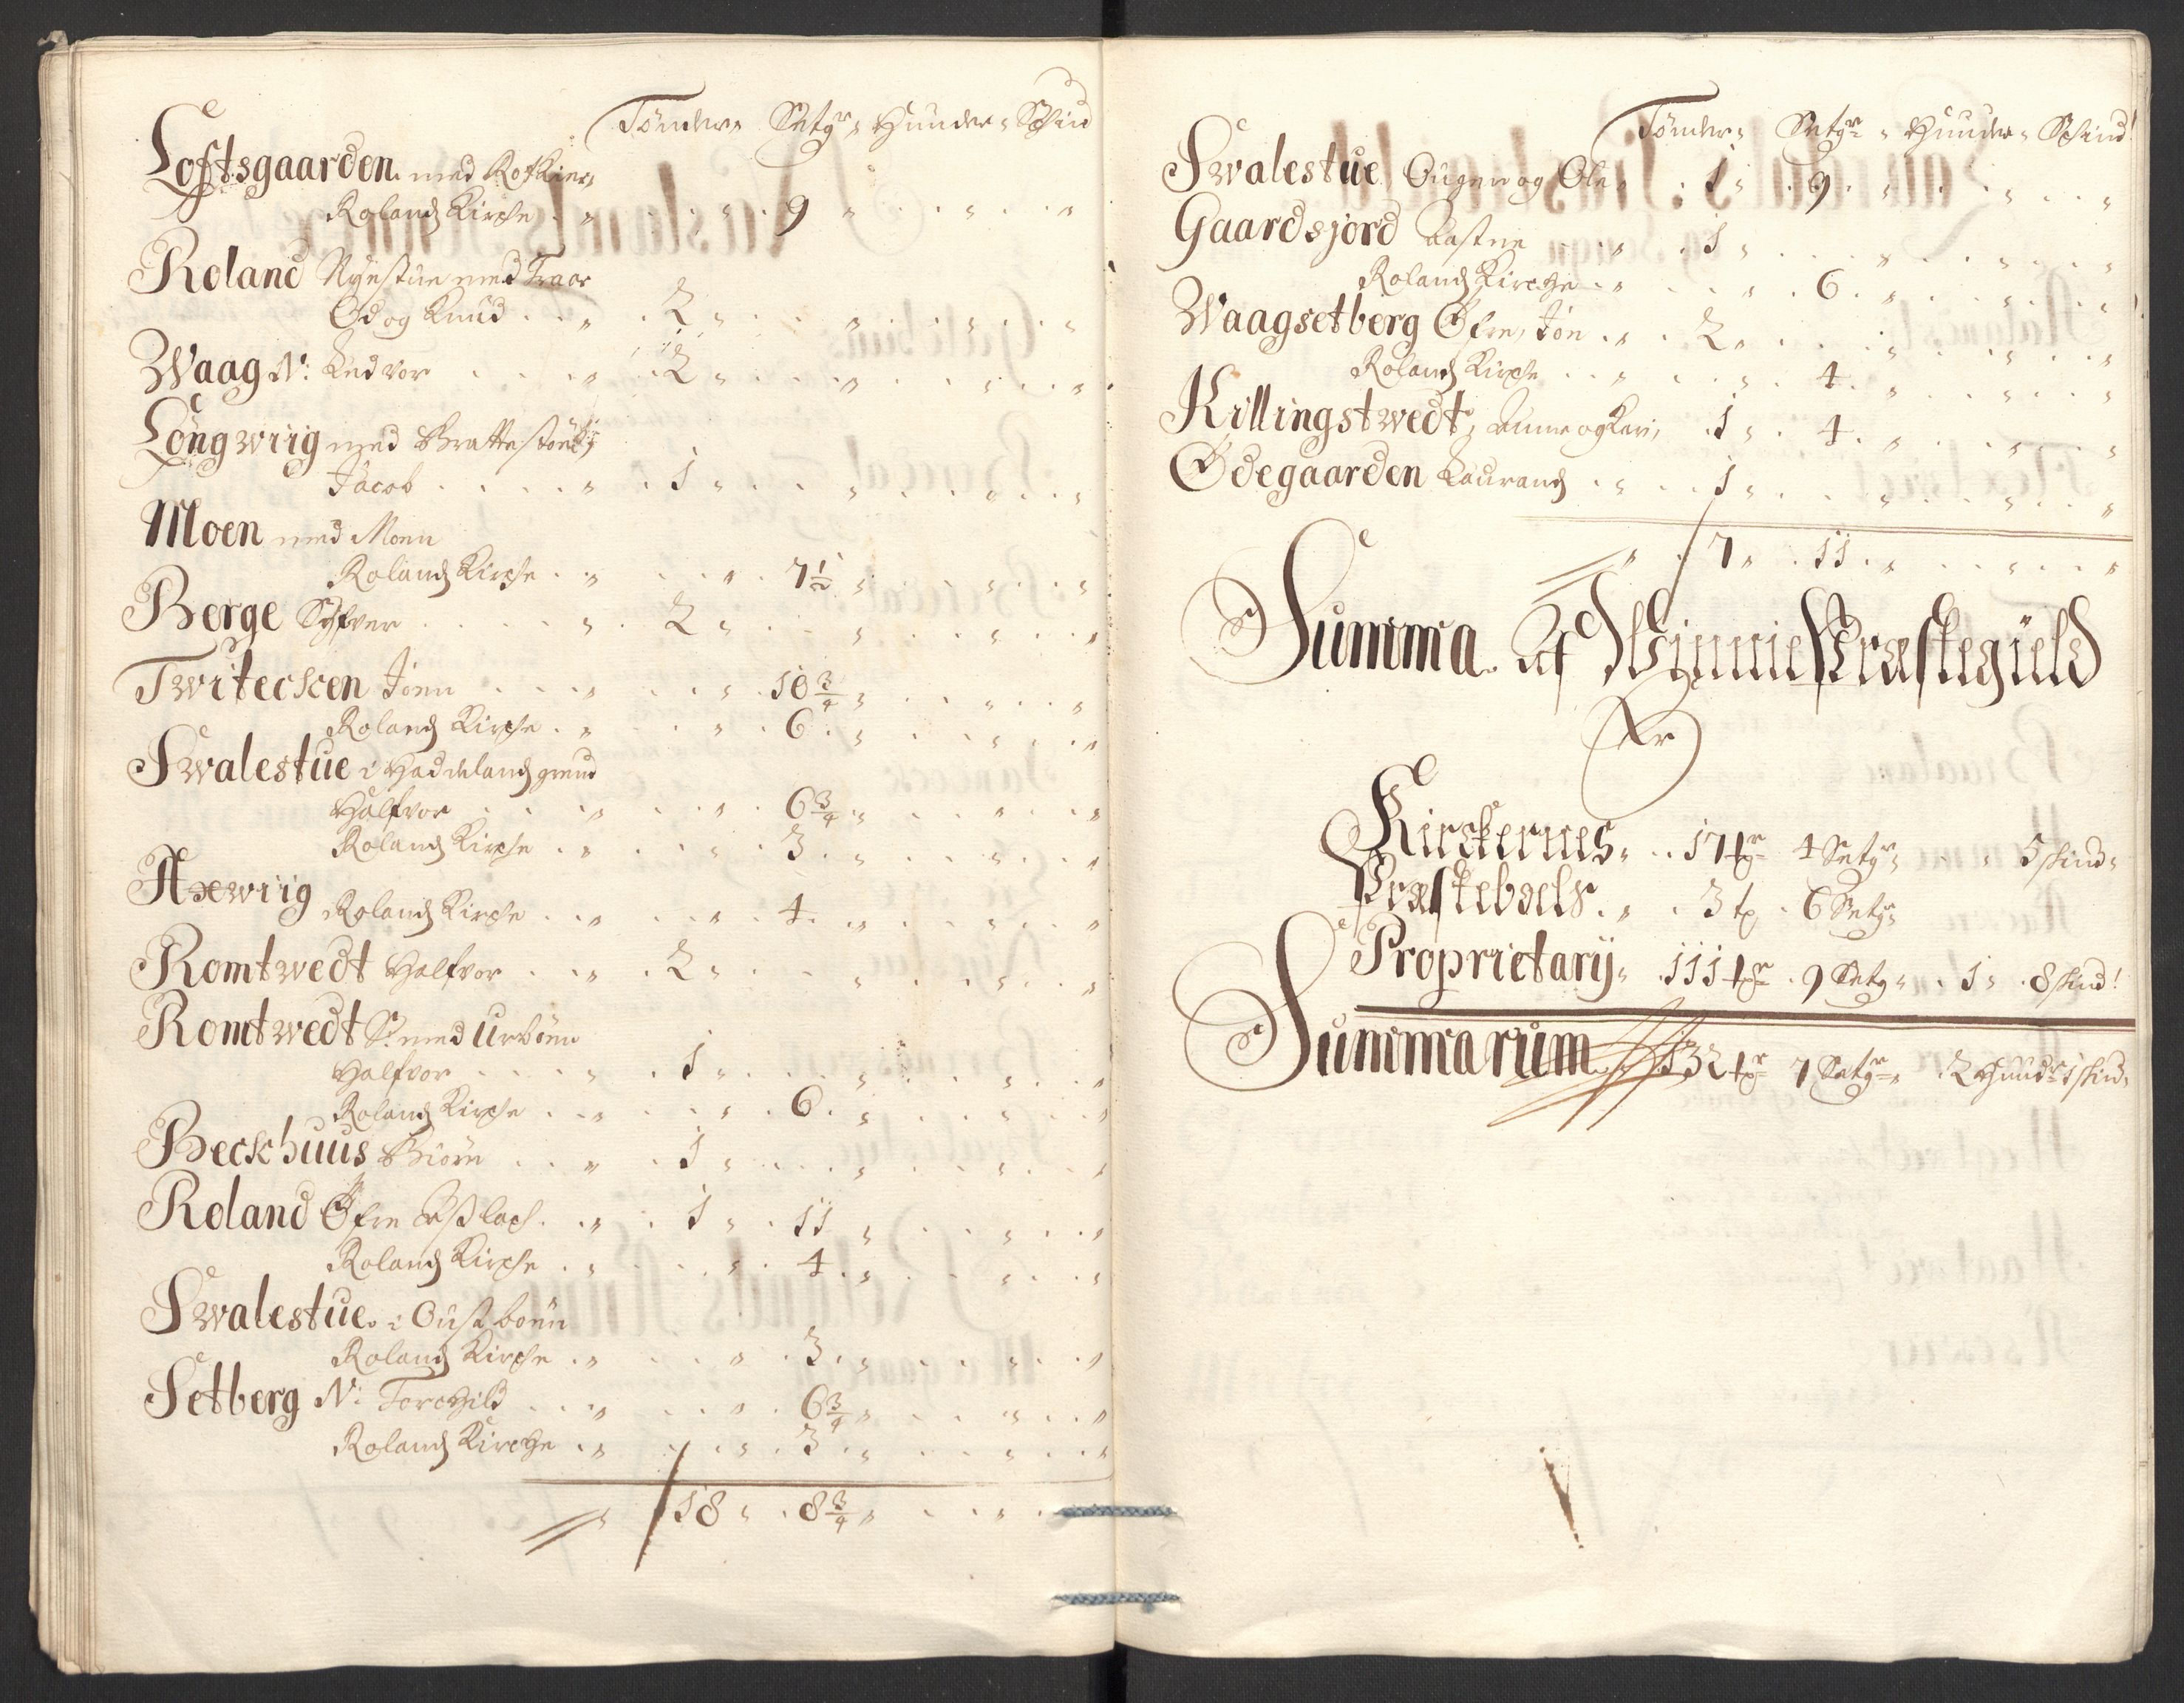 Tønder„ Setgr„ Hunder„ Schind
Loftsgaarden med Rotkier„
Rolands Kirche . „ . . . . 9 „ . . . . „
Roland Nÿestue med Traar
Od og Knud . . „ . 2 „ . . „ . . . „ . . „
Waag N: Kedvor . . . „ . 2 „ . . . „ . . . „ . . „
Longwiig med Brattestøel,
Jacob . . . . „ . 1 „ . . . „ . . . „ . . „
Moen med Moen
Rolands Kirche . . „ . . . „ . 7½ „ . . . „ . . „
Berge Sÿfver . . . . „ . 2 „ . . . „ . . . „ . . „
Twitecken Joen . . . „ . . . „ . 10¾ „ . . . „ . . „
Rolands Kirche . „ . . . „ . 6 . „ . . . „ . . „
Swalestue i Haddelands grend
Halfvor . . . „ . . . „ . 6¾ „ . . . „ . . „
Rolands Kirche . „ . . . „ . 3 . „ . . . „ . . „
Axewiig Rolands Kirche . . „ . . . „ . 4 . „ . . . „ . . „
Romtwedt Halfvor . . „ . 2 „ . . . „ . . . „ . . „
Romtwedt S: med Urbøen
Halfvor . . . . „ . 1 „ . . . „ . . . „ . . „
Rolands Kirche . . „ . . . „ . 6 . „ . . . „ . . „
Beckhuus Biørn . . „ . 1 „ . . . „ . . . „ . . „
Roland Øfre Aslach . . „ . 1 „ . 11 „ . . . „ . . „
Rolands Kirche . „ . . . „ . 4 . „ . . . „ . . „
Swalestue i Øustbøen
Rolands Kirche . „ . . . „ . 3 . „ . . . „ . . „
Setberg N: Torchild . . „ . . . „ . 6¾ „ . . . „ . . „
Rolands Kirche . „ . . . „ . 3 . „ . . . „ . . „
„ 18 „ . 8¾ „ . . . „ .
Tønder„ Setgr „ Hunder„ Schind!
Swalestue Ougen og Ole „ . 1 „ . 9 . „ . . . „ . . „
Gaardsjord Aastne . . „ . 1 „ . . . „ . . . „ . . „
Rolands Kirche . „ . . . „ . 6 . „ . . . „ . . „
Waagsetberg Øfre, Jon . „ . 2 „ . . . „ . . . „ . . „
Rolands Kirche . . „ . . . „ . 4 . „ . . . „ . . „
Killingstwedt, Anne og Kari, . 1 „ . 4 . „ . . . „ . . „
Ødegaarden Laurands . „ . 1 „ . . . „ . . . „ . . „
„ . 7 „ . 11 . „ . . . „ . . „
Summa Af Winnie Præstegield
Er
Kirckernes „ . . 17 tr 4 Setgr „ . . „ 5 skind„
Præstebols . „ . 3 tr . 6 Setgr
Proprietarÿ „ . 111 tr . 9 Setgr „ . 1 „ . 8 skind!
Summarum . 132 tr 7 Setgr „ . 2 Hundr 1 skind„